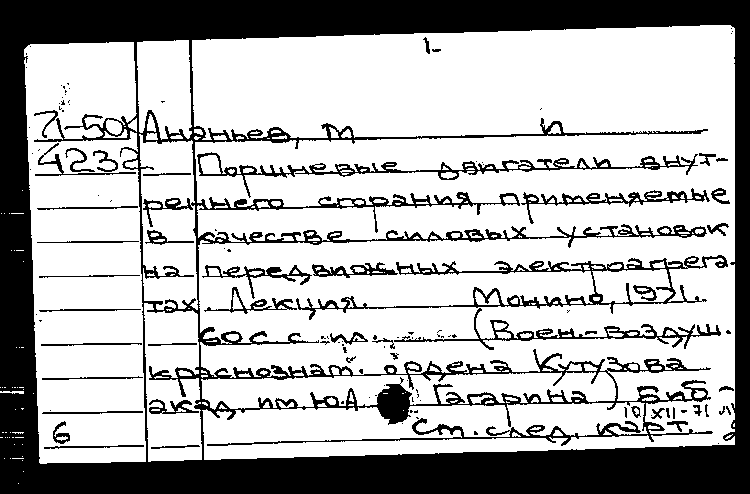 1-
71-50к Ананьев, М П
4232 Поршневые двигатели внут-
реннего сгорания, применяемые
в качестве силовых установок
на передвижных электроагрега-
тах. Лекция. Монино, 1971.
60 с с ил. (Воен.-воздуш.
краснознам. ордена Кутузова
акад. им. Ю.А Гагарина) Биб-
10/XII-71
6 См. след. карт.